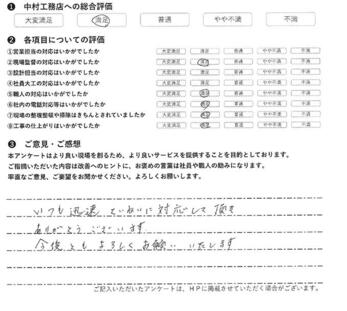 ❶ 中村工務店への総合評価
大変満足 満足 普通 やや不満 不満
❷ 各項目についての評価
①営業担当の対応はいかがでしたか 大変満足 満足 普通 やや不満 不満
②現場監督の対応はいかがでしたか 大変満足 満足 普通 やや不満 不満
③設計担当の対応はいかがでしたか 大変満足 満足 普通 やや不満 不満
④社員大工の対応はいかがでしたか 大変満足 満足 普通 やや不満 不満
⑤職人の対応はいかがでしたか 大変満足 満足 普通 やや不満 不満
⑥社内の電話対応等はいかがでしたか 大変満足 満足 普通 やや不満 不満
⑦現場の整理整頓や掃除はきちんとされていましたか 大変満足 満足 普通 やや不満 不満
⑧工事の仕上がりはいかがでしたか 大変満足 満足 普通 やや不満 不満
❸ ご意見・ご感想
本アンケートはより良い現場を創るため、より良いサービスを提供することを目的としております。
ご指摘いただいた内容は改善へのヒントに、お褒めの言葉は社員や職人の励みになります。
率直なご意見、ご要望をお聞かせください。よろしくお願いします。
いつも迅速 ていねいに対応して頂き
ありがとうございます
今後ともよろしくお願いいたします
ご記入いただいたアンケートは、HPに掲載させていただく場合がございます。